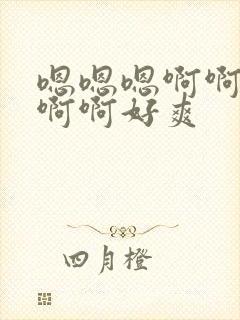 嗯嗯嗯啊啊
啊啊好爽
四月橙